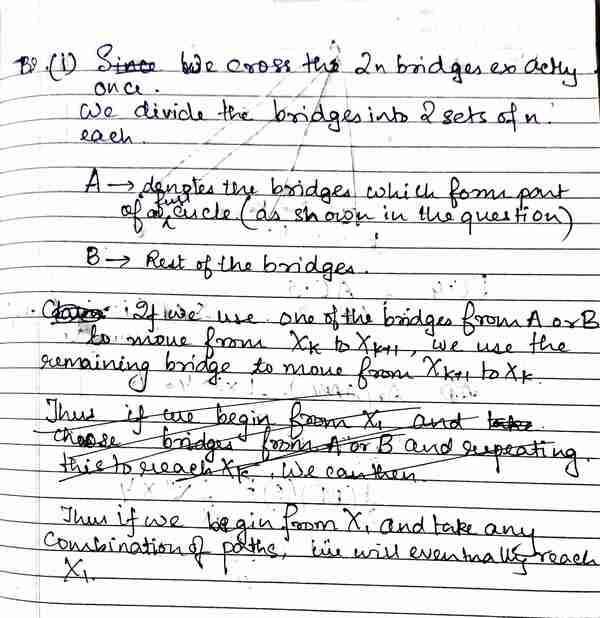 B9. (i) Since We cross the 2n bridges exactly
once.
We divide the bridges into 2 sets of n
each.
A → denotes the bridges which form part
of a full circle (as shown in the question)
B → Rest of the bridges.
Claim: If we use one of the bridges from A or B
to move from Xk to Xk+1, we use the
remaining bridge to move from Xk+1 to Xk.
Thus if we begin from X1 and take
choose bridges from A or B and repeating
this to reach Xk, we can then
Thus if we begin from X1 and take any
combination of paths, we will eventually reach
X1.